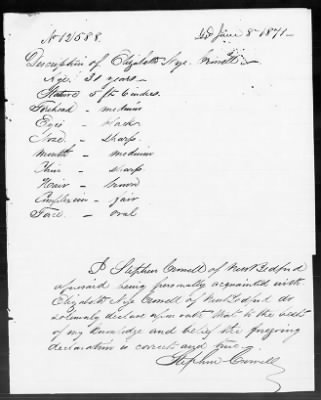 No 12588. Isd June 8th 1871
Description of Elizabeth Nye Cornell
Age. 31 years
Stature 5 ft. 6 inches.
Forehead - medium
Eyes - black
Nose - sharp
mouth - medium
Chin - sharp
Hair - brown
Complexion - fair
Face - oval
I Stephen Cornell of New Bedford
aforesaid being personally acquainted with
Elizabeth Nye Cornell of New Bedford do
solemnly declare upon oath that to the best
of my knowledge and belief the foregoing
declaration is correct and true.
Stephen Cornell